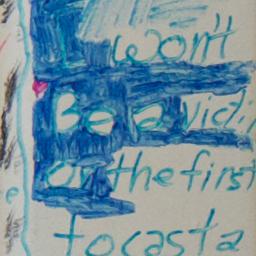 I won't
Be a vidi
or the first
to cast a